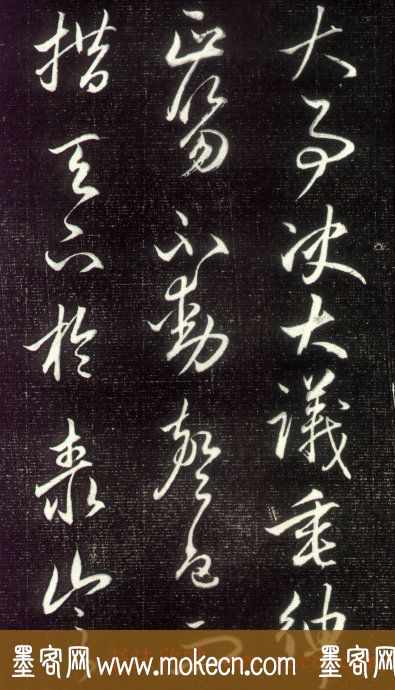 大事決大議垂紳
正笏不動聲色而
措天下於泰山之
墨客网 www.mokecn.com 墨客网